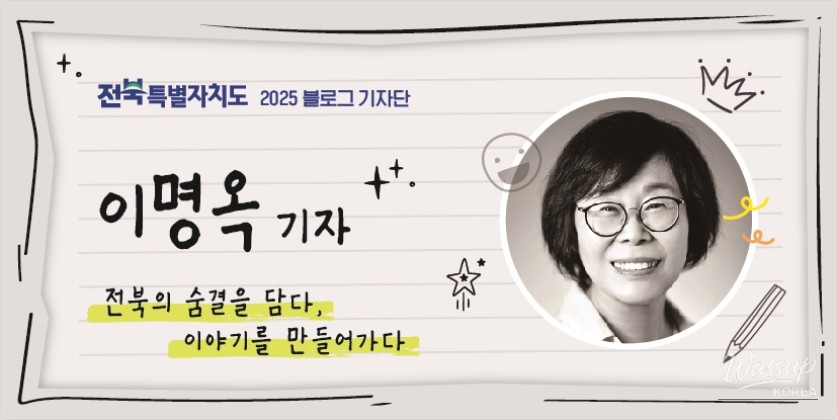 전북특별자치도 2025 블로그 기자단
이명옥 기자
전북의 숨결을 담다,
이야기를 만들어가다
Wassup
KOREA